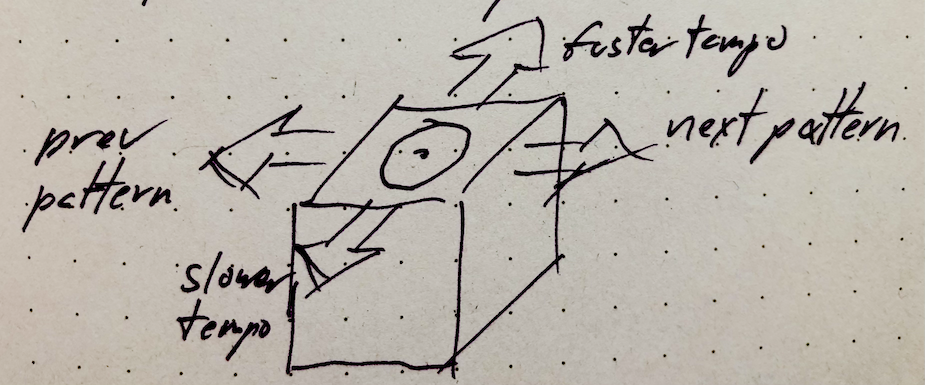 faster tempo
prev
pattern
next pattern
slower
tempo